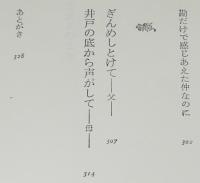 勘だけで感じあえた仲なのに
302
ぎんめしとけて──父──
307
井戸の底から声がして──母──
314
あとがき
328